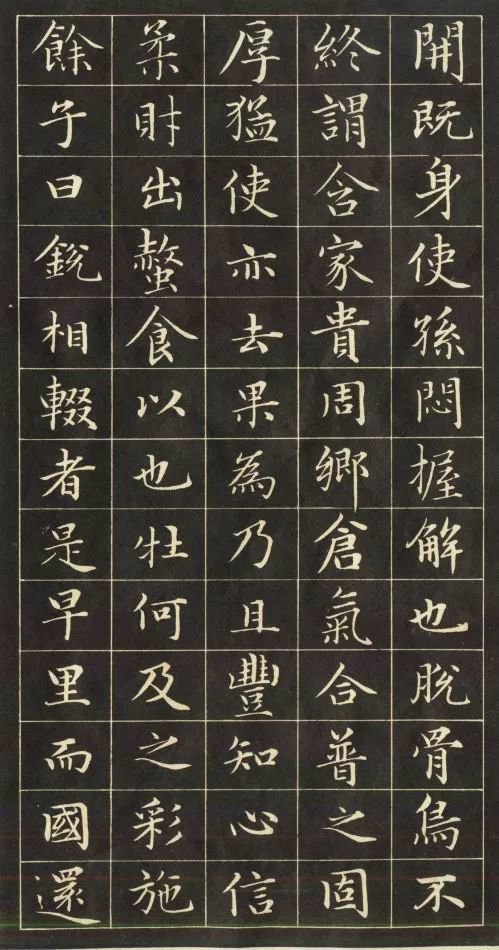 開既身使孫悶握解也脫骨鳥不
終謂含家貴周鄉倉氣合普之固
厚猛使亦去果為乃且豐知心信
柔財出螫食以也牡何及之彩施
餘子曰銳相輟者是早里而國還